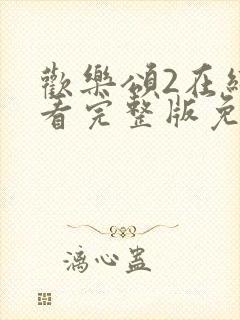 歡樂頌2在線
看完整版免
漓心蛊